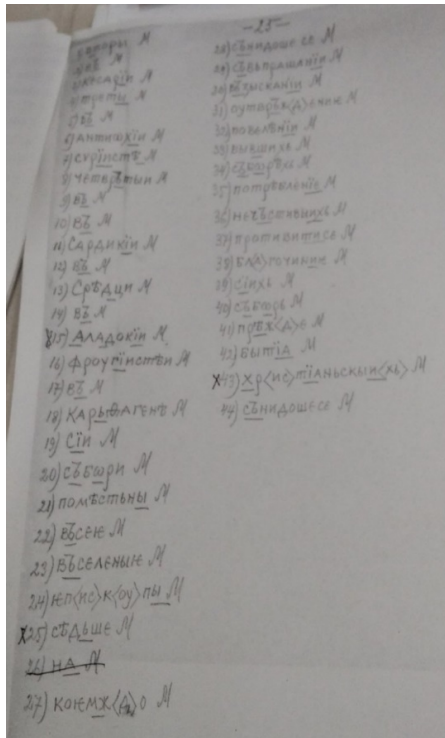 -25-
1) вторы М
2) къ М
3) кесадїи М
4) трєты М
5) въ М
6) Антиѡхїи М
7) сурїистѣ М
8) четврътыи М
9) въ М
10) въ М
11) Сардикїи М
12) въ М
13) Срѣдци М
14) въ М
X15) Аладокїи М
16) фроугїистѣи М
17) въ М
18) Карьѳагенѣ М
19) Сїи М
20) събѡри М
21) помѣстьны М
22) въсею М
23) въселеныѥ М
24) ѥп<ис>к<оу>пы М
X25) сѣдьше М
26) на М
27) коѥмж<д>о М
28) сънидоше се М
29) съвъпрашанїи М
30) възысканїи М
31) оутвръж<д>енїи М
32) повелѣнїи М
33) бывшихь М
34) съборѣхь М
35) потрѣбленїе М
36) нечьстивыихь М
37) противитисе М
38) бл<а>гочинїи М
39) сїихь М
40) съборь М
41) прѣж<д>е М
42) бытїа М
X43) хр<ис>тїаньскыи<хь> М
44) сънидошесе М